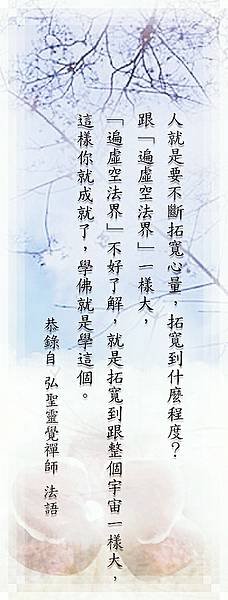 人就是要不斷拓寬心量，拓寬到什麼程度？
跟「遍虛空法界」一樣大，
「遍虛空法界」不好了解，就是拓寬到跟整個宇宙一樣大，
這樣你就成就了，學佛就是學這個。
恭錄自 弘聖靈覺禪師 法語